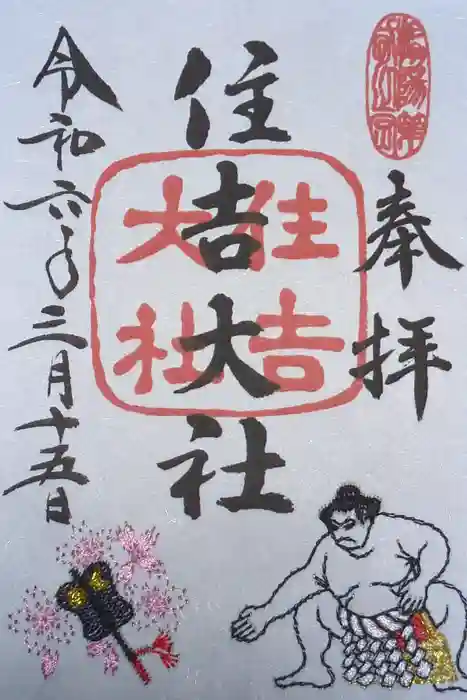 奉拝
住吉大社
住吉
大社
令和六年三月十五日